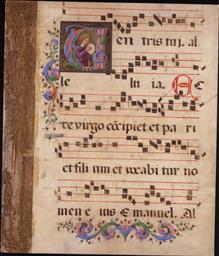 en tris tui. al
le lu ia. Ec
ce virgo cōcipiet et pa ri
et fili um et vocabi tur no
men e ius Emanuel. Al